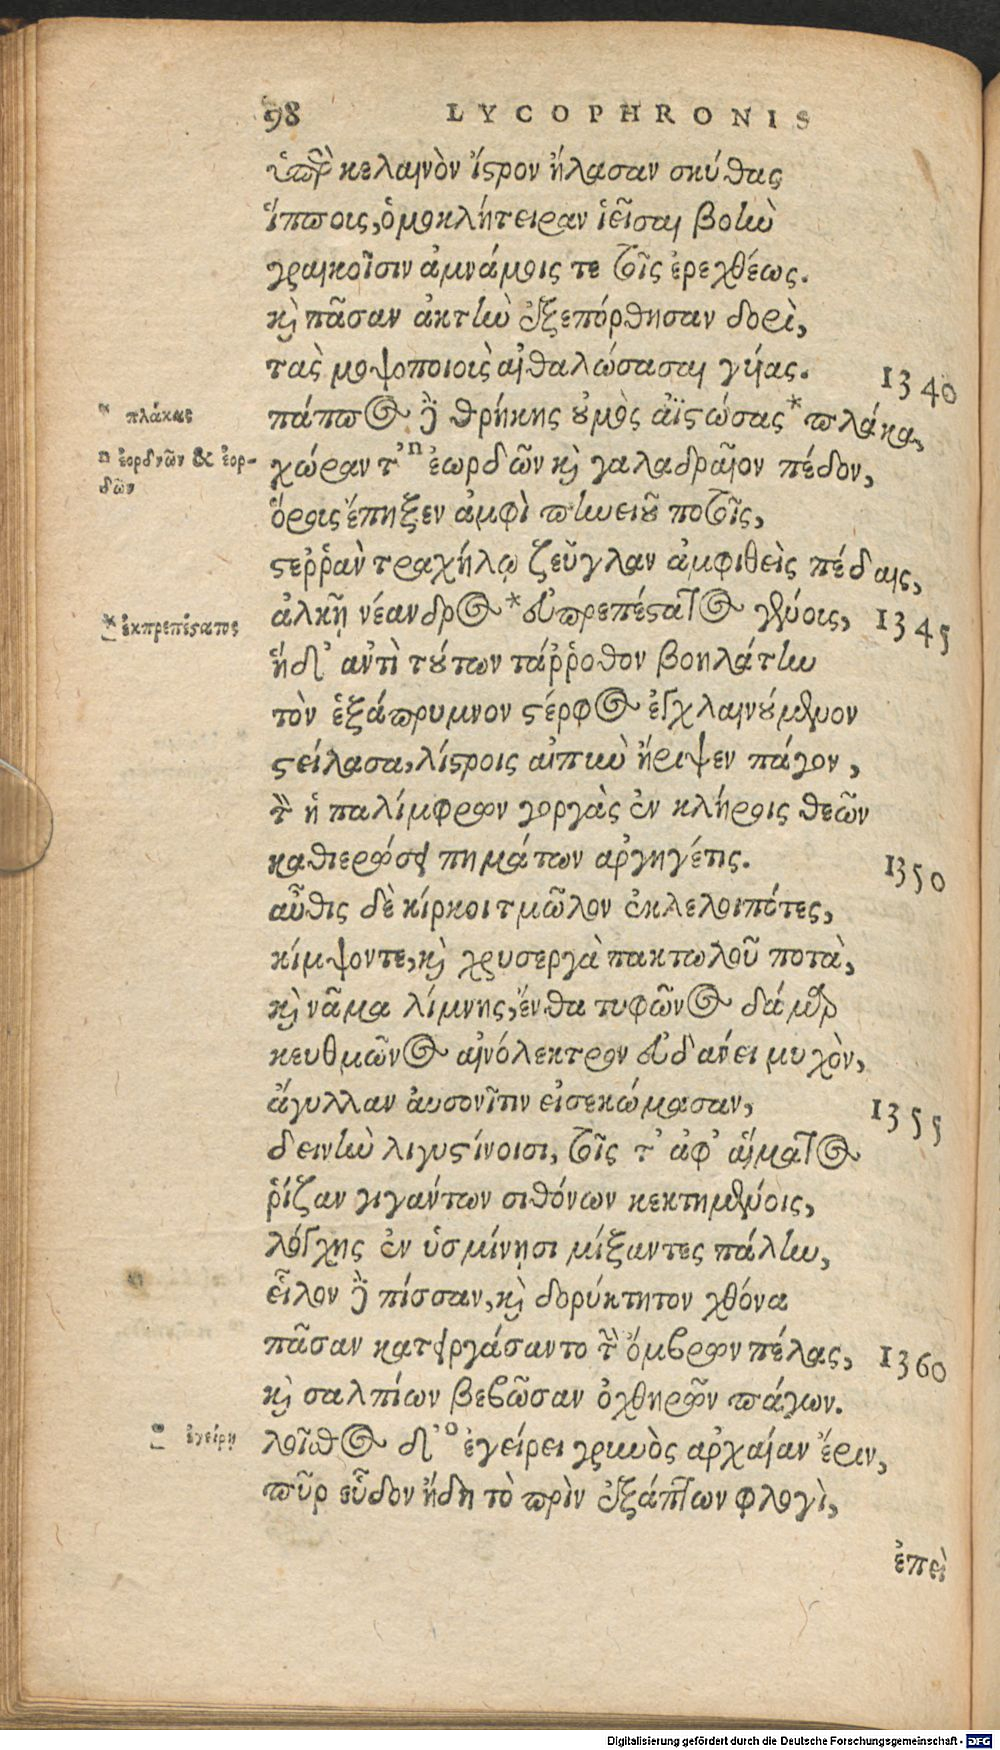 98 LYCOPHRONIS
ὑπὲρ κελαινὸν ἴστρον ἤλασαν σκύθας
ἵπποις, ὁμοκλήτειραν ἱεῖσαι βοὴν
γραικοῖσιν ἀμνάμοις τε τοῖς ἐρεχθέως.
καὶ πᾶσαν ἀκτὴν ἐξεπόρθησαν δορὶ,
τὰς μοψοποιοὺς αἰθαλώσασαι γύας. 1340
πάππος δὲ θρήκης οὑμὸς ἀϊστώσας* πλάκα,
* πλάκας
χώραν τ' ⁿ ἐεορδῶν καὶ γαλαδραῖον πέδον,
n ἐορδνῶν & ἐορ-
δῶν
ὅροις ἔπηξεν ἀμφὶ πηνειοῦ ποτοῖς,
στεῤῥὰν τραχήλῳ ζεῦγλαν ἀμφιθεὶς πέδαις,
ἀλκῇ νέανδρος * ἐκπρεπέστατος γένους, 1345
* ἐκπρεπέστατος
ἡ δ' ἀντὶ τούτων τάῤῥοθον βοηλάτην
τὸν ἑξάπρυμνον στέρφος ἐγχλαινούμενον
στείλασα, λίστροις αἰπὺν ἤριψεν πάγον,
τὸν ἡ παλίμφρων γοργὰς ἐν κλήροις θεῶν
καθιέρωσε πημάτων ἀρχηγέτις. 1350
αὖθις δὲ κίρκοι τμῶλον ἐκλελοιπότες,
κίμψον τε, καὶ χρυσεργὰ πακτωλοῦ ποτὰ,
καὶ νᾶμα λίμνης, ἔνθα τυφῶνος δάμαρ
κευθμῶνος αἰνόλεκτρον ἐνδαύει μυχὸν,
ἄγυλλαν αὐσονῖτιν εἰσεκώμασαν, 1355
δεινὴν λιγυστίνοισι, τοῖς τ' ἀφ' αἵματος
ῥίζαν γιγάντων σιθόνων κεκτημένοις,
λόγχης ἐν ὑσμίνῃσι μίξαντες πάλην,
εἷλον δὲ πίσσαν, καὶ δορύκτητον χθόνα
πᾶσαν κατειργάσαντο τὴν ὄμβρων πέλας, 1360
καὶ σαλπίων βεβῶσαν ὀχθηρῶν πάγων.
λοῖσθος δ' ᵒ ἐγείρει γρυνὸς ἀρχαίαν ἔριν,
o ἐγείρῃ
πῦρ εὗδον ἤδη τὸ πρὶν ἐξάπτων φλογὶ,
ἐπεὶ
Digitalisierung gefördert durch die Deutsche Forschungsgemeinschaft - DFG